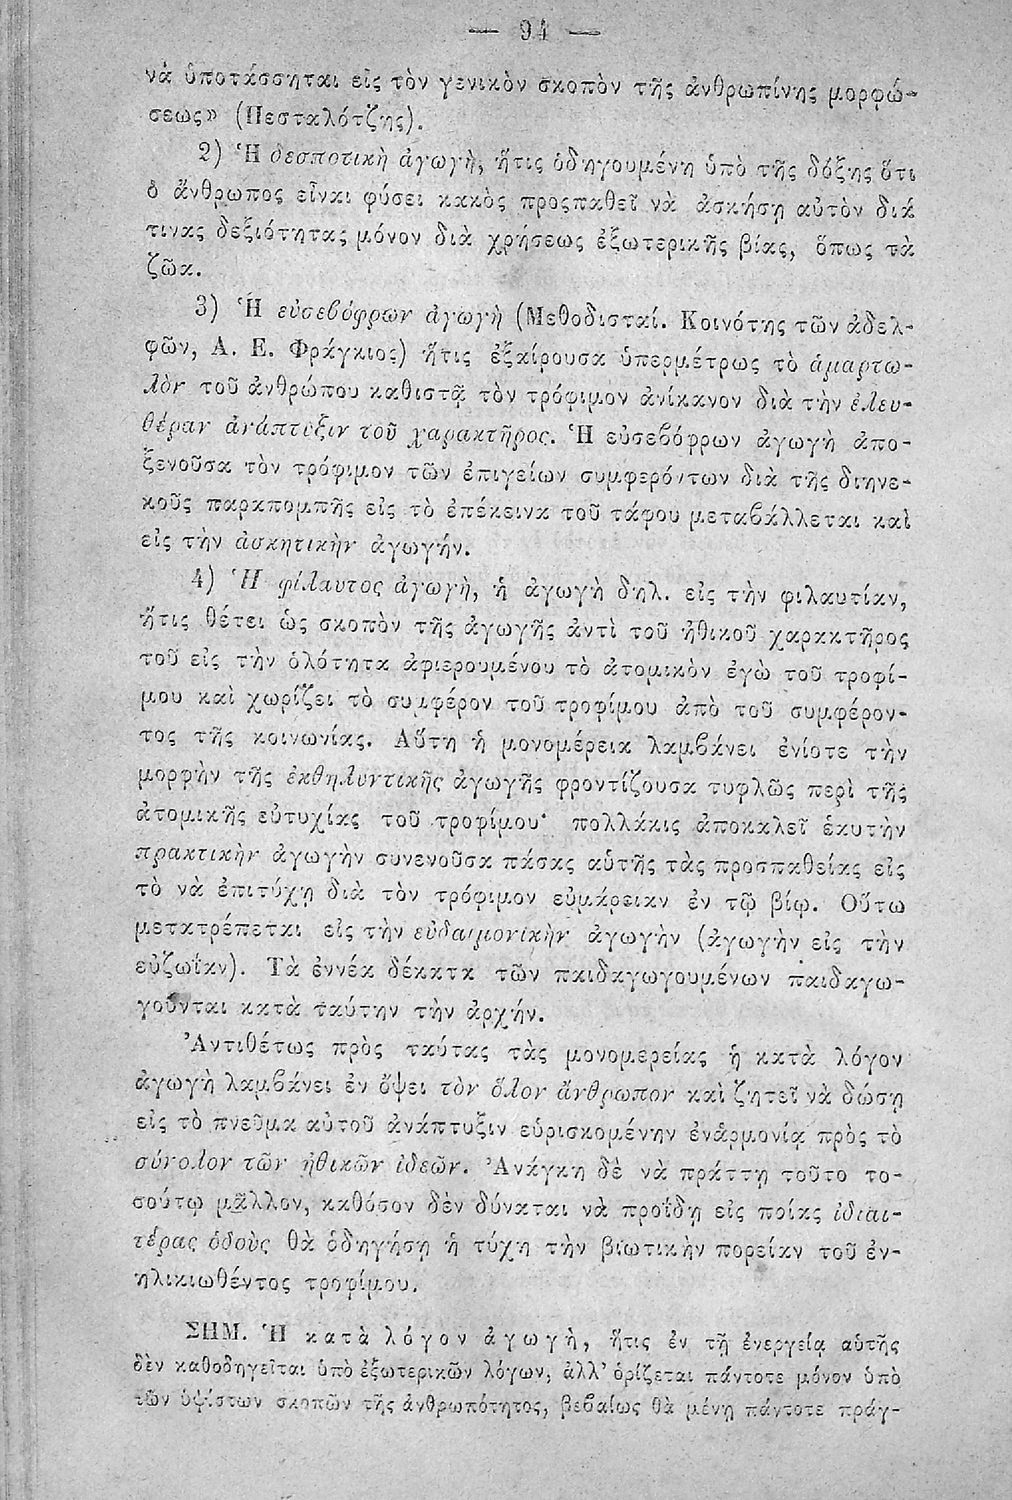 — 94 —
νὰ ὑποτάσσηται εἰς τὸν γενικὸν σκοπὸν τῆς ἀνθρωπίνης μορφώ-
σεως» (Πεσταλότζης).
2) Ἡ δεσποτικὴ ἀγωγὴ, ἥτις ὁδηγουμένη ὑπὸ τῆς δόξης ὅτι
ὁ ἄνθρωπος εἶναι φύσει κακὸς προςπαθεῖ νὰ ἀσκήσῃ αὐτὸν διά
τινας δεξιότητας μόνον διὰ χρήσεως ἐξωτερικῆς βίας, ὅπως τὰ
ζῶα.
3) Ἡ εὐσεβόφρων ἀγωγὴ (Μεθοδισταί. Κοινότης τῶν ἀδελ-
φῶν, Α. Ε. Φράγκιος) ἥτις ἐξαίρουσα ὑπερμέτρως τὸ ἁμαρτω-
λὸν τοῦ ἀνθρώπου καθιστᾷ τὸν τρόφιμον ἀνίκανον διὰ τὴν ἐλευ-
θέραν ἀνάπτυξιν τοῦ χαρακτῆρος. Ἡ εὐσεβόφρων ἀγωγὴ ἀπο-
ξενοῦσα τὸν τρόφιμον τῶν ἐπιγείων συμφερόντων διὰ τῆς διηνε-
κοῦς παραπομπῆς εἰς τὸ ἐπέκεινα τοῦ τάφου μεταβάλλεται καὶ
εἰς τὴν ἀσκητικὴν ἀγωγήν.
4) Ἡ φίλαυτος ἀγωγὴ, ἡ ἀγωγὴ δηλ. εἰς τὴν φιλαυτίαν,
ἥτις θέτει ὡς σκοπὸν τῆς ἀγωγῆς ἀντὶ τοῦ ἠθικοῦ χαρακτῆρος
τοῦ εἰς τὴν ὁλότητα ἀφιερουμένου τὸ ἀτομικὸν ἐγὼ τοῦ τροφί-
μου καὶ χωρίζει τὸ συμφέρον τοῦ τροφίμου ἀπὸ τοῦ συμφέρον-
τος τῆς κοινωνίας. Αὕτη ἡ μονομέρεια λαμβάνει ἐνίοτε τὴν
μορφὴν τῆς ἐκθηλυντικῆς ἀγωγῆς φροντίζουσα τυφλῶς περὶ τῆς
ἀτομικῆς εὐτυχίας τοῦ τροφίμου· πολλάκις ἀποκαλεῖ ἑαυτὴν
πρακτικὴν ἀγωγὴν συνενοῦσα πάσας αὑτῆς τὰς προσπαθείας εἰς
τὸ νὰ ἐπιτύχῃ διὰ τὸν τρόφιμον εὐμάρειαν ἐν τῷ βίῳ. Οὕτω
μετατρέπεται εἰς τὴν εὐδαιμονικὴν ἀγωγὴν (ἀγωγὴν εἰς τὴν
εὐζωΐαν). Τὰ ἐννέα δέκατα τῶν παιδαγωγουμένων παιδαγω-
γοῦνται κατὰ ταύτην τὴν ἀρχήν.
Ἀντιθέτως πρὸς ταύτας τὰς μονομερείας ἡ κατὰ λόγον
ἀγωγὴ λαμβάνει ἐν ὄψει τὸν ὅλον ἄνθρωπον καὶ ζητεῖ νὰ δώσῃ
εἰς τὸ πνεῦμα αὐτοῦ ἀνάπτυξιν εὑρισκομένην ἐνἁρμονίᾳ πρὸς τὸ
σύνολον τῶν ἠθικῶν ἰδεῶν. Ἀνάγκη δὲ νὰ πράττῃ τοῦτο το-
σούτῳ μᾶλλον, καθόσον δὲν δύναται νὰ προΐδῃ εἰς ποίας ἰδιαι-
τέρας ὁδοὺς θὰ ὁδηγήσῃ ἡ τύχη τὴν βιωτικὴν πορείαν τοῦ ἐν-
ηλικιωθέντος τροφίμου.
ΣΗΜ. Ἡ κατὰ λόγον ἀγωγὴ, ἥτις ἐν τῇ ἐνεργείᾳ αὑτῆς
δὲν καθοδηγεῖται ὑπὸ ἐξωτερικῶν λόγων, ἀλλ' ὁρίζεται πάντοτε μόνον ὑπὸ
τῶν ὑψίστων σκοπῶν τῆς ἀνθρωπότητος, βεβαίως θὰ μένῃ πάντοτε πράγ-